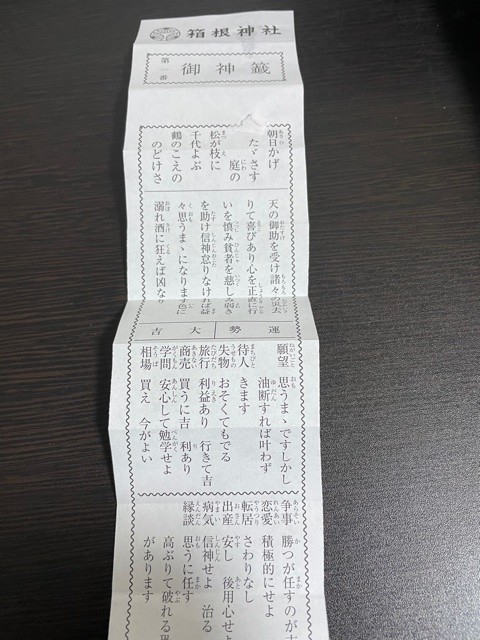 箱根神社
第一番
御神籤
朝日かげ
たゞさす
庭の
松が枝に
千代よぶ
鶴のこえの
のどけさ
天の御助を受け諸々の災去
りて喜びあり心を正直に行
いを慎み貧者を慈しみ弱き
を助け信神怠りなければ益
々思うまゝになります色に
溺れ酒に狂えば凶なり
運勢
大吉
願望 思うまゝですしかし
油断すれば叶わず
待人 きます
失物 おそくてもでる
旅行 利益あり 行きて吉
商売 買うに吉 利あり
学問 安心して勉学せよ
相場 買え 今がよい
争事 勝つが任すのが
恋愛 積極的にせよ
転居 さわりなし
出産 安し 後用心せよ
病気 信神せよ 治る
縁談 思うに任す
高ぶりて破れる
があります